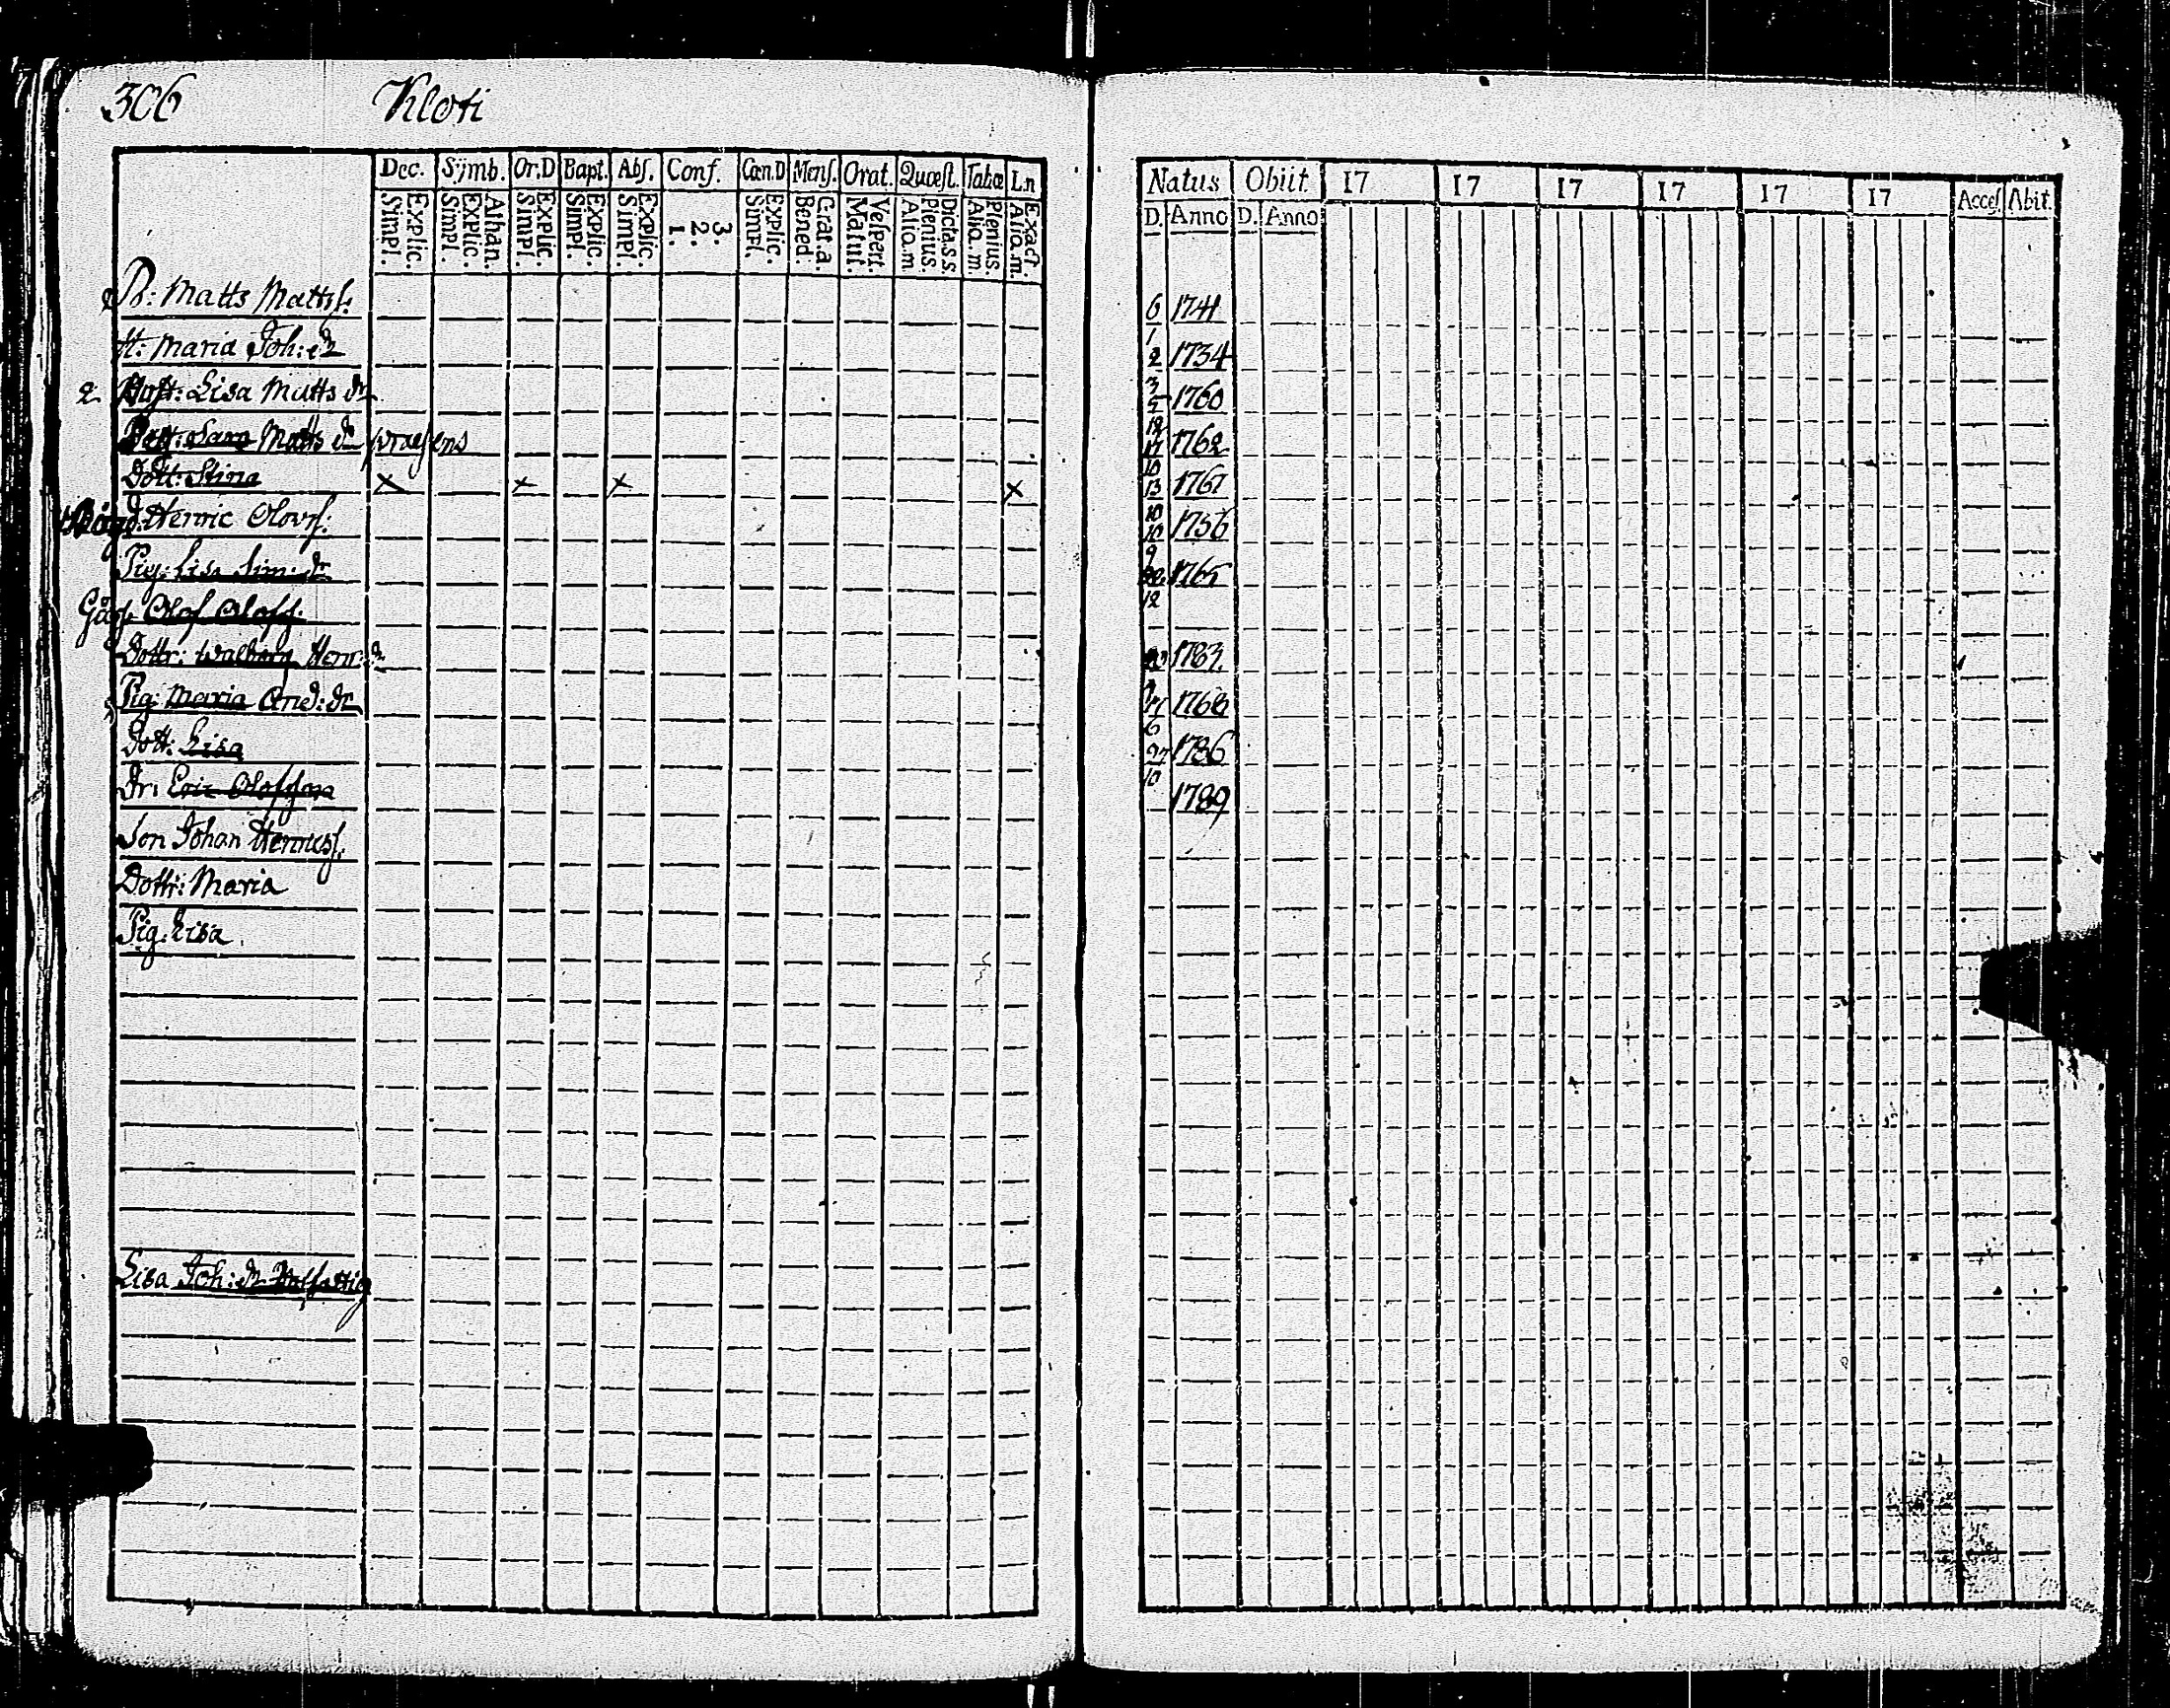 306 Kloti
Dec. Symb. Or.D Bapt. Abs. Conf. Cœn.D Mens. Orat. Quæst. Tabœ L.n
Explic. Simpl. Athan. Explic. Simpl. Explic. Simpl. Explic. Simpl. Explic. Simpl. 3. 2. 1. Explic. Simpl. Grat.a. Bened. Vespert. Matut. Dicta.s.s. Plenius. Alio.m. Plenius. Alio.m. Exact. Alio.m.
Natus Obiit 17 17 17 17 17 17 Acces Abit.
D. Anno D. Anno
B: Matts Mattss: 6 1741
H: Maria Joh: dr 1 2 1734
2 Lisa Matts dr 3 1760
Sara Matts dr 12 17 1762
Dott: Stina x x x x 10 13 1767
Henric Olovs: 10 10 1756
Pig: Lisa Sim: dr 9 1765
Olof Olofs: 12
Dottr: Walborg Henr: dr 1783.
Pig: Maria And: dr 1768
Dott: Lisa 6 27 1786
Dr: Eric Olofsson 10 1789
Son Johan Henricss.
Dottr: Maria
Pig: Lisa.
Lisa Joh: dr